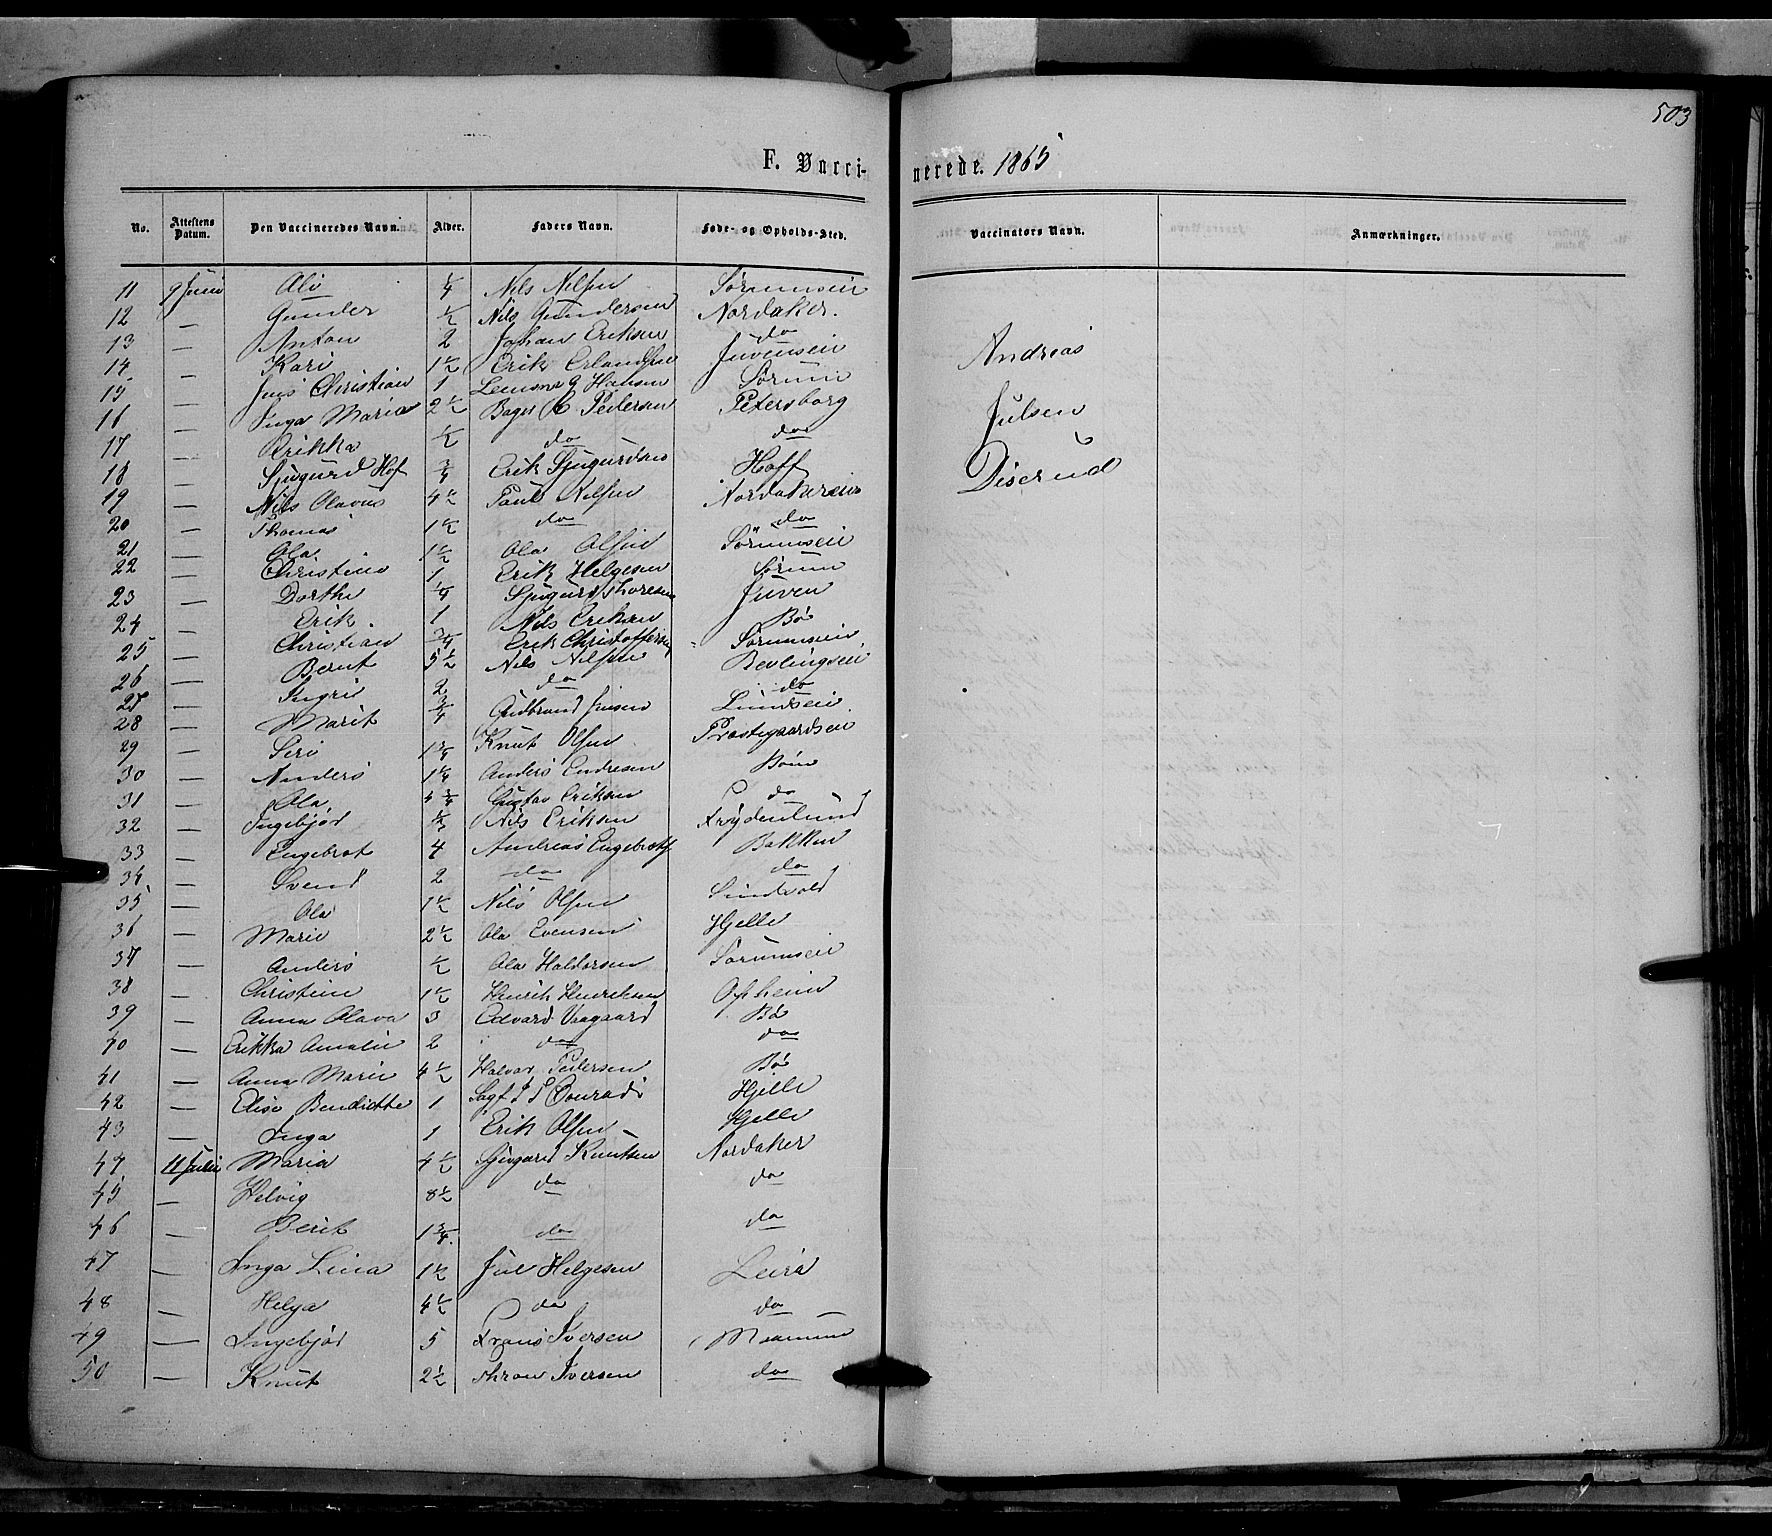 503
F. Vaccinerede. 1865
No. Attestens Datum. Den Vaccineredes Navn. Alder. Faders Navn. Føde- og Opholds-Sted. Vaccinatørs Navn. Anmærkninger.
11 9 Juni Oli 1/4 Nils Nilsen Sørumseie
12 — Gunder 1/2 Nils Gundersen Nordaker.
13 — Anton 2 Johan Eriksen do
14 — Kari 1 1/2 Erik Erlandsen Juvenseie
15 — Jens Christian 1 G Hansen Sørum
16 — Inga Maria 2 1/2 Pedersen Petersborg
17 — Erikka 1/2 do do
18 — Sjugurd Hof 3/4 Erik Sjugurdsen Hoff
19 — Nils Olavus 4 1/2 Paul Nilsen Nordakereie
20 — Thomas 1 1/2 do do
21 — Ola 1 1/2 Ola Olsen Sørumseie
22 — Christine 1 Erik Helgesen Sørum
23 — Dorthe 1/4 Sjugurd Thoresen Juven
24 — Erik. 1 Nils Eriksen Bø
25 — Christian 3/4 Erik Christoffersen Sørumseie
26 — Bernt 5 1/2 Nils Nilsen Revlingseie
27 — Ingri 2 do do
28 — Marit 3/4 Gudbrand Jensen Lundseie
29 — Seri 1 3/4 Knut Olsen Præstegaardseie
30 — Anders 1 1/4 Anders Endresen Bøen
31 — Ola 4 3/4 Gustav Eriksen do
32 — Ingebjør 1/2 Nils Eriksen Frydenlund
33 — Engebrot 4 Andreas Engebrots Bakken
34 — Svend 2 do do
35 — Ola 1 1/2 Nils Olsen Sundvold
36 — Marie 2 1/2 Ola Evensen Hjelle
37 — Anders 1/2 Ola Haldorsen Sørumseie
38 — Christine 1 1/2 Henrik Henriksen Opheim
39 — Anna Olava 3 Edvard Vaagaard Bø
40 — Erikka Amalie 2 do do
41 — Anna Marie 4 1/2 Halvor Pedersen Bø
42 — Elise Bendicthe 1 Conradi Hjelle
43 — Inga 1 Erik Olsen Hjelle
44 11 Juli Maria 4 1/2 Sjugurd Knutsen Nordaker
45 — Helvig 8 1/2 do do
46 — Berit 1 3/4 do do
47 — Inga Lina 1 1/2 Jul Helgesen Leira
48 — Helga 4 1/2 do do
49 — Ingebjør 5 Frans Iversen
50 — Knut 2 1/2 Thron Iversen do
Andreas
Julsen
Diserud